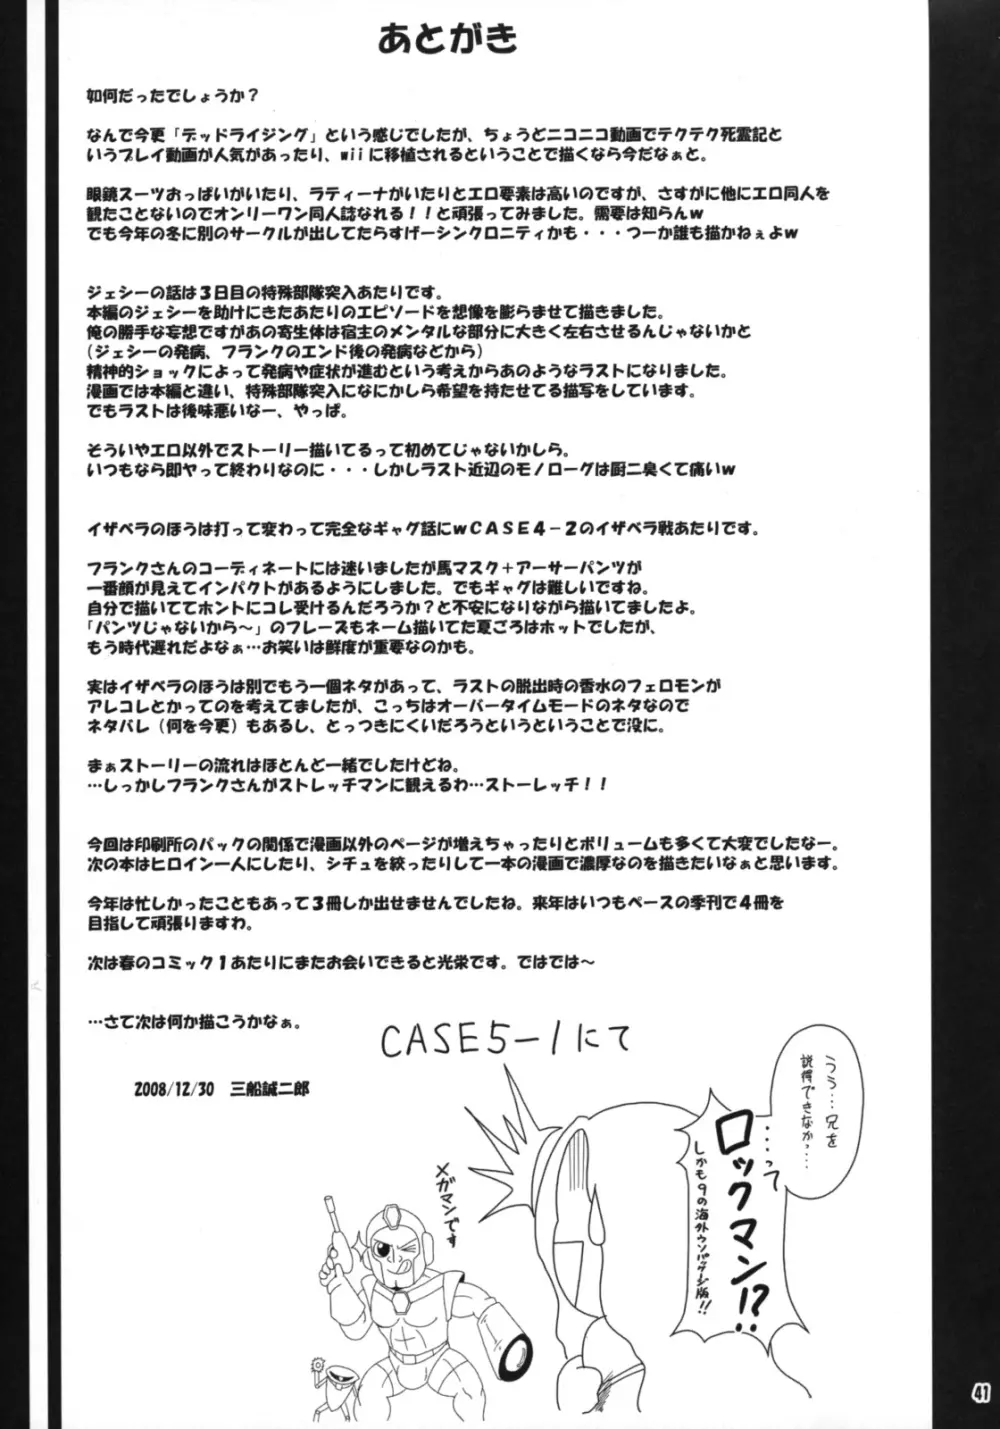 あとがき
如何だったでしょうか？
なんで今更「デッドライジング」という感じでしたが、ちょうどニコニコ動画でテクテク死霊記と
いうプレイ動画が人気があったり、wiiに移植されるということで描くなら今だなぁと。
眼鏡スーツおっぱいがいたり、ラティーナがいたりとエロ要素は高いのですが、さすがに他にエロ同人を
観たことないのでオンリーワン同人誌なれる！！と頑張ってみました。需要は知らんｗ
でも今年の冬に別のサークルが出してたらすげーシンクロニティかも・・・つーか誰も描かねぇよｗ
ジェシーの話は３日目の特殊部隊突入あたりです。
本編のジェシーを助けにきたあたりのエピソードを想像を膨らませて描きました。
俺の勝手な妄想ですがあの寄生体は宿主のメンタルな部分に大きく左右させるんじゃないかと
（ジェシーの発病、フランクのエンド後の発病などから）
精神的ショックによって発病や症状が進むという考えからあのようなラストになりました。
漫画では本編と違い、特殊部隊突入になにかしら希望を持たせてる描写をしています。
でもラストは後味悪いなー、やっぱ。
そういやエロ以外でストーリー描いてるって初めてじゃないかしら。
いつもなら即ヤって終わりなのに・・・しかしラスト近辺のモノローグは厨二臭くて痛いｗ
イザベラのほうは打って変わって完全なギャグ話にｗＣＡＳＥ４－２のイザベラ戦あたりです。
フランクさんのコーディネートには迷いましたが馬マスク＋アーサーパンツが
一番顔が見えてインパクトがあるようにしました。でもギャグは難しいですね。
自分で描いててホントにコレ受けるんだろうか？と不安になりながら描いてましたよ。
「パンツじゃないから～」のフレーズもネーム描いてた夏ごろはホットでしたが、
もう時代遅れだよなぁ…お笑いは鮮度が重要なのかも。
実はイザベラのほうは別でもう一個ネタがあって、ラストの脱出時の香水のフェロモンが
アレコレとかってのを考えてましたが、こっちはオーバータイムモードのネタなので
ネタバレ（何を今更）もあるし、とっつきにくいだろうというということで没に。
まぁストーリーの流れはほとんど一緒でしたけどね。
…しっかしフランクさんがストレッチマンに観えるわ…ストーレッチ！！
今回は印刷所のパックの関係で漫画以外のページが増えちゃったりとボリュームも多くて大変でしたなー。
次の本はヒロイン一人にしたり、シチュを絞ったりして一本の漫画で濃厚なのを描きたいなぁと思います。
今年は忙しかったこともあって３冊しか出せませんでしたね。来年はいつもペースの季刊で４冊を
目指して頑張りますわ。
次は春のコミック１あたりにまたお会いできると光栄です。ではでは～
…さて次は何か描こうかなぁ。
2008/12/30　三船誠二郎
CASE５－１にて
うぅ…兄を
説得できなか…
……って
ロックマン!?
しかも９の海外ウソパッケージ版!!
メガマンです
41